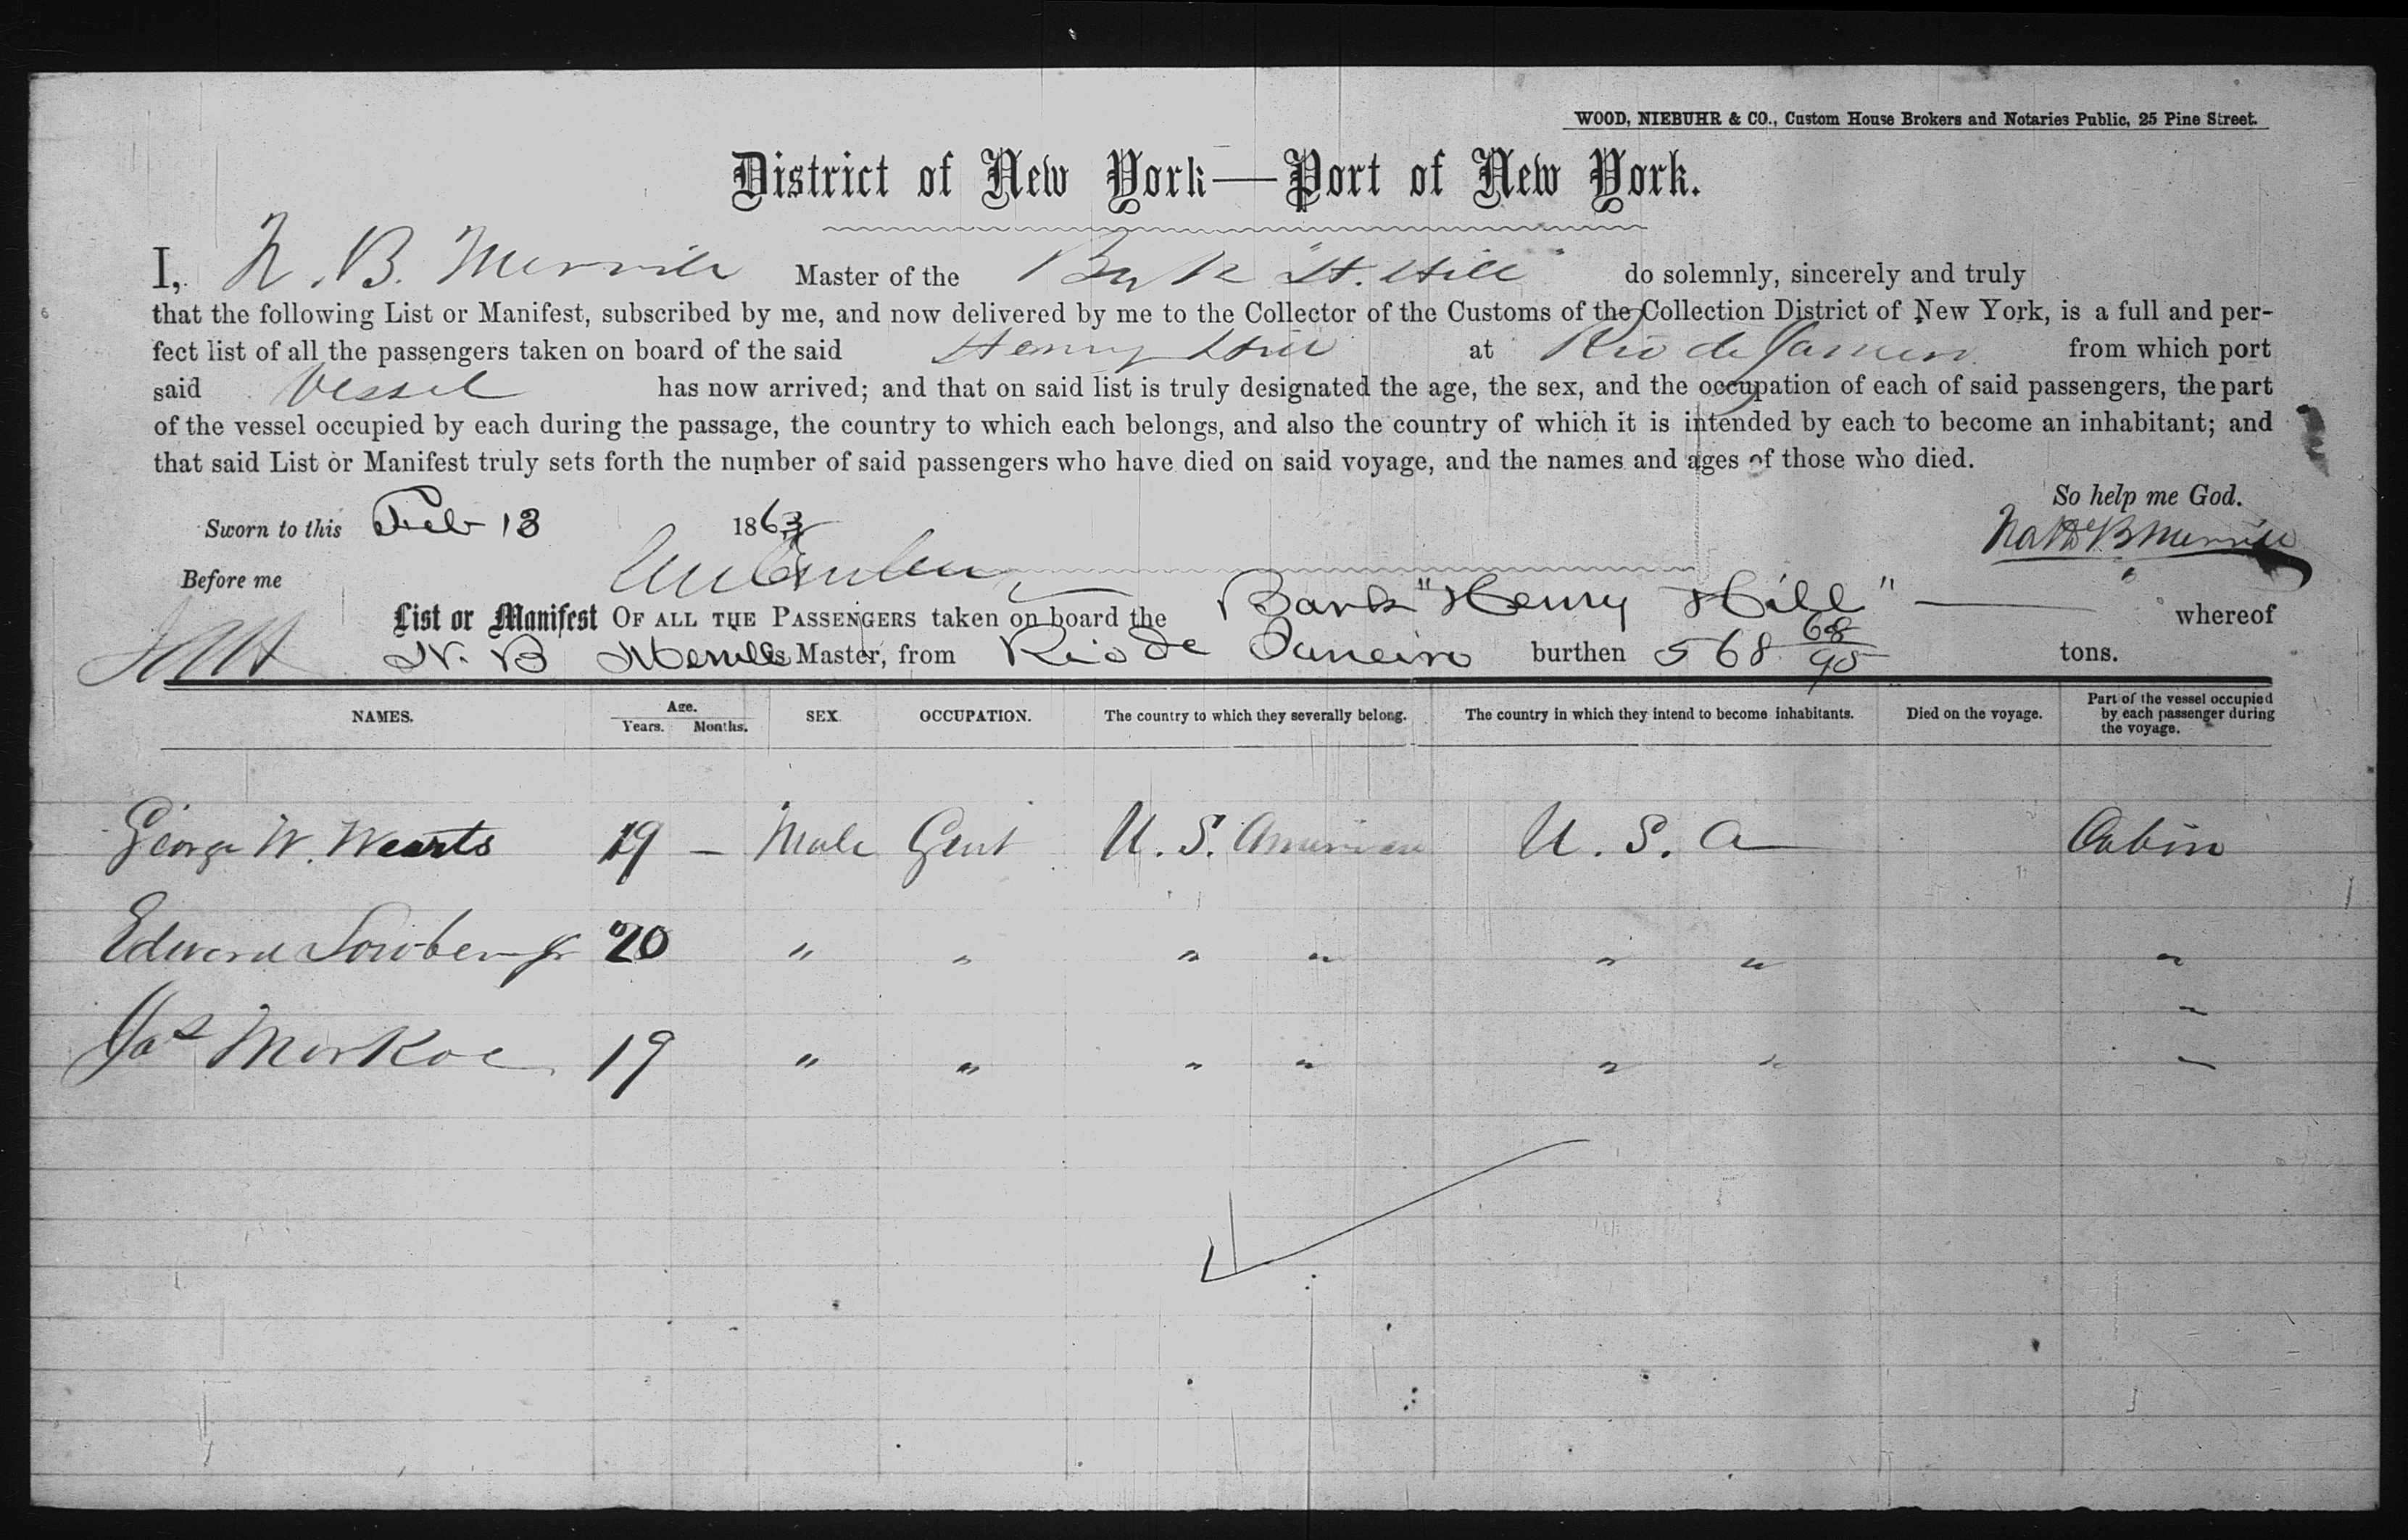 WOOD, NIEBUHR & CO., Custom House Brokers and Notaries Public, 25 Pine Street.
District of New York—Port of New York.
I, N. B. Merrill Master of the Bark "H. Hill" do solemnly, sincerely and truly
that the following List or Manifest, subscribed by me, and now delivered by me to the Collector of the Customs of the Collection District of New York, is a full and per-
fect list of all the passengers taken on board of the said Henry Hill at Rio de Janeiro from which port
said Vessel has now arrived; and that on said list is truly designated the age, the sex, and the occupation of each of said passengers, the part
of the vessel occupied by each during the passage, the country to which each belongs, and also the country of which it is intended by each to become an inhabitant; and
that said List or Manifest truly sets forth the number of said passengers who have died on said voyage, and the names and ages of those who died.
So help me God.
Sworn to this Feb 13 1863
B Merrill
Before me
List or Manifest OF ALL THE PASSENGERS taken on board the Bark "Henry Hill" — whereof
N. B Merrill is Master, from Rio de Janeiro burthen 568 68/95 tons.
NAMES. Age. Years. Months. SEX OCCUPATION. The country to which they severally belong. The country in which they intend to become inhabitants. Died on the voyage. Part of the vessel occupied by each passenger during the voyage.
George W. Wearts 19 — Male Gent U. S. American U. S. A Cabin
Edward 20 " " " " " " "
"
Jas Morkoe 19 " " " " " " "